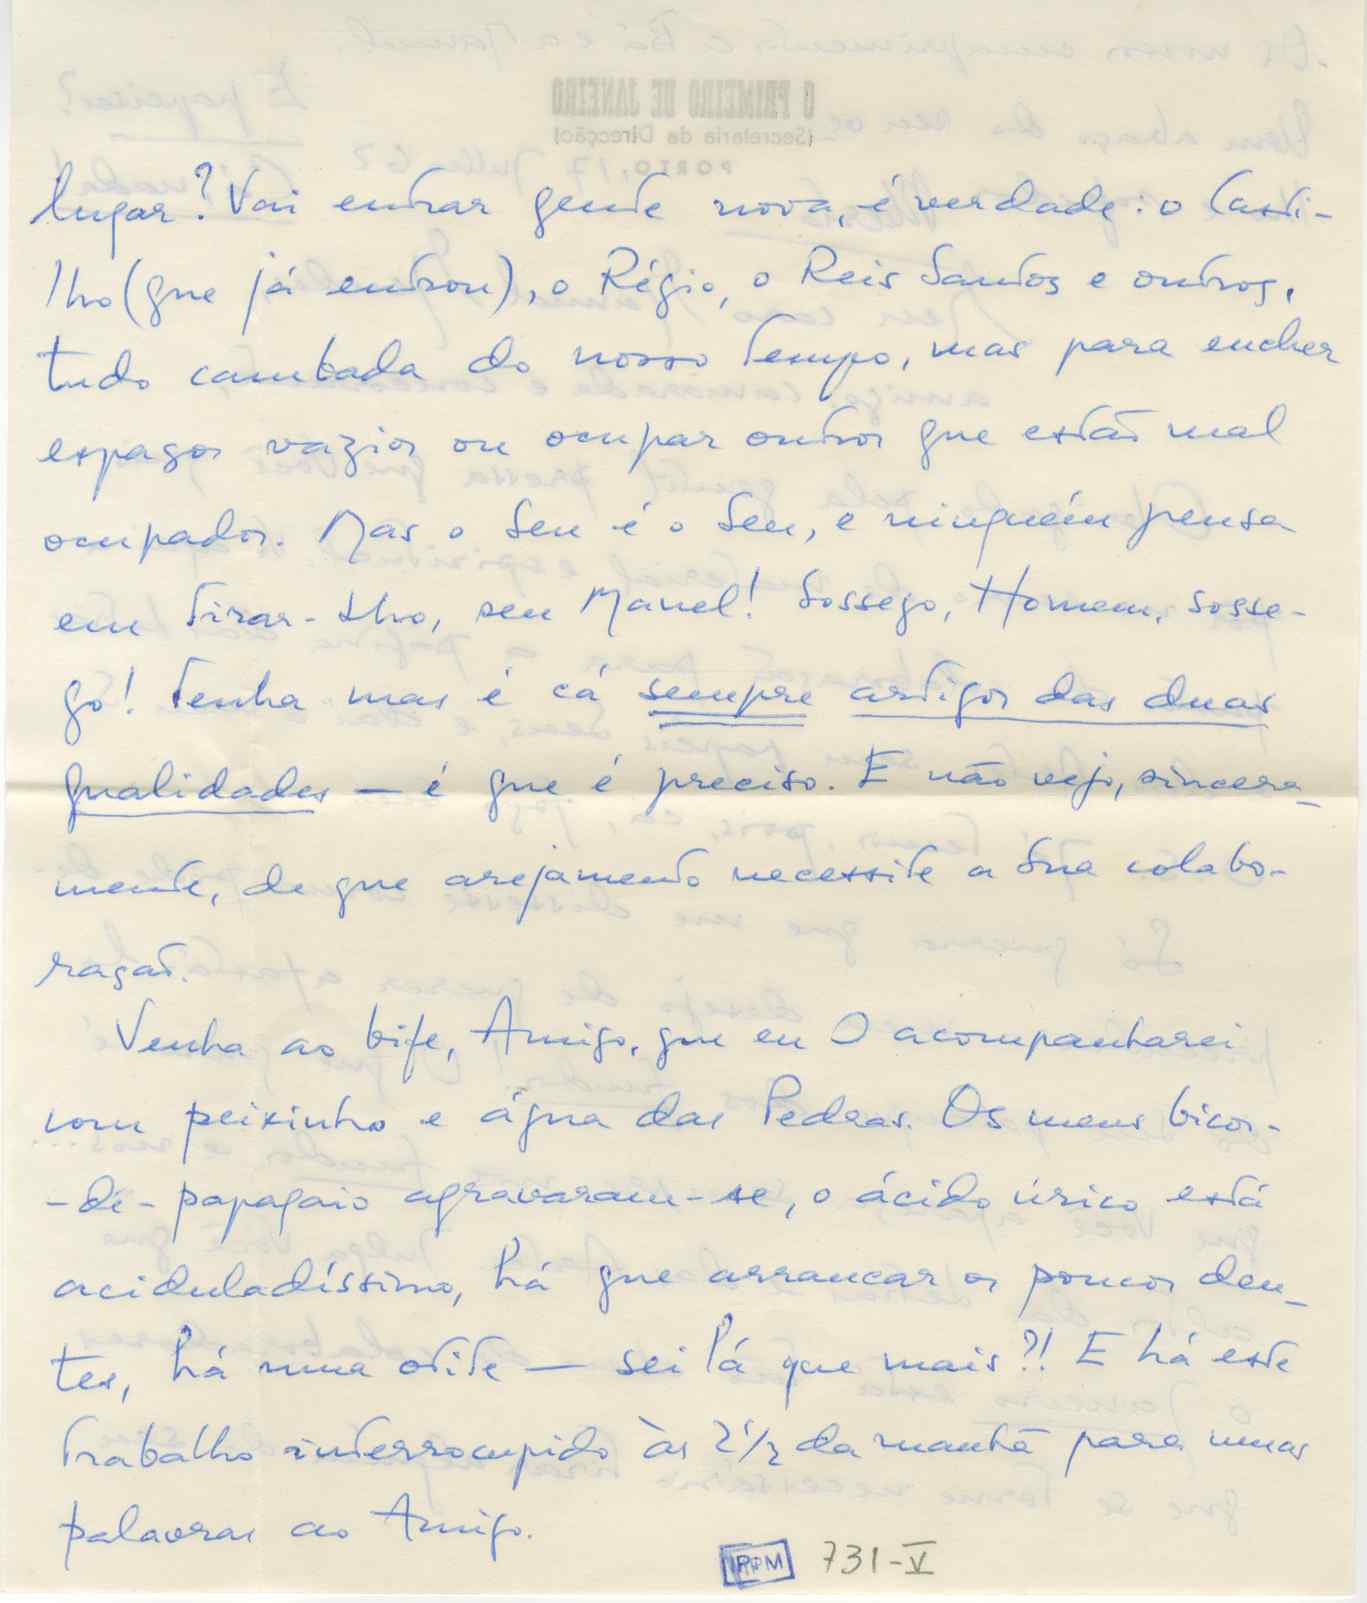 lugar? Vai entrar gente nova, é verdade: o Casti-
lho (que já entrou), o Régio, o Reis Santos e outros,
tudo cambada do nosso tempo, mas para encher
espaços vazios ou ocupar outros que estão mal
ocupados. Mas o Seu é o Seu, e ninguém pensa
em tirar-Lho, seu Manel! Sossego, Homem, sosse-
go! Tenha mas é cá sempre artigos das duas
qualidades — é que é preciso. E não vejo, sincera-
mente, de que arejamento necessite a Sua colabo-
ração.
Venha ao bife, Amigo, que eu O acompanharei
com peixinho e água das Pedras. Os meus bicos-
-de-papagaio agravaram-se, o ácido úrico está
aciduladíssimo, há que arrancar os poucos den-
tes, há uma otite — sei lá que mais?! E há este
trabalho interrompido às 2 1/2 da manhã para umas
palavras ao Amigo.
O PRIMEIRO DE JANEIRO
(Secretaria da Direcção)
PORTO,
RPM 731-V